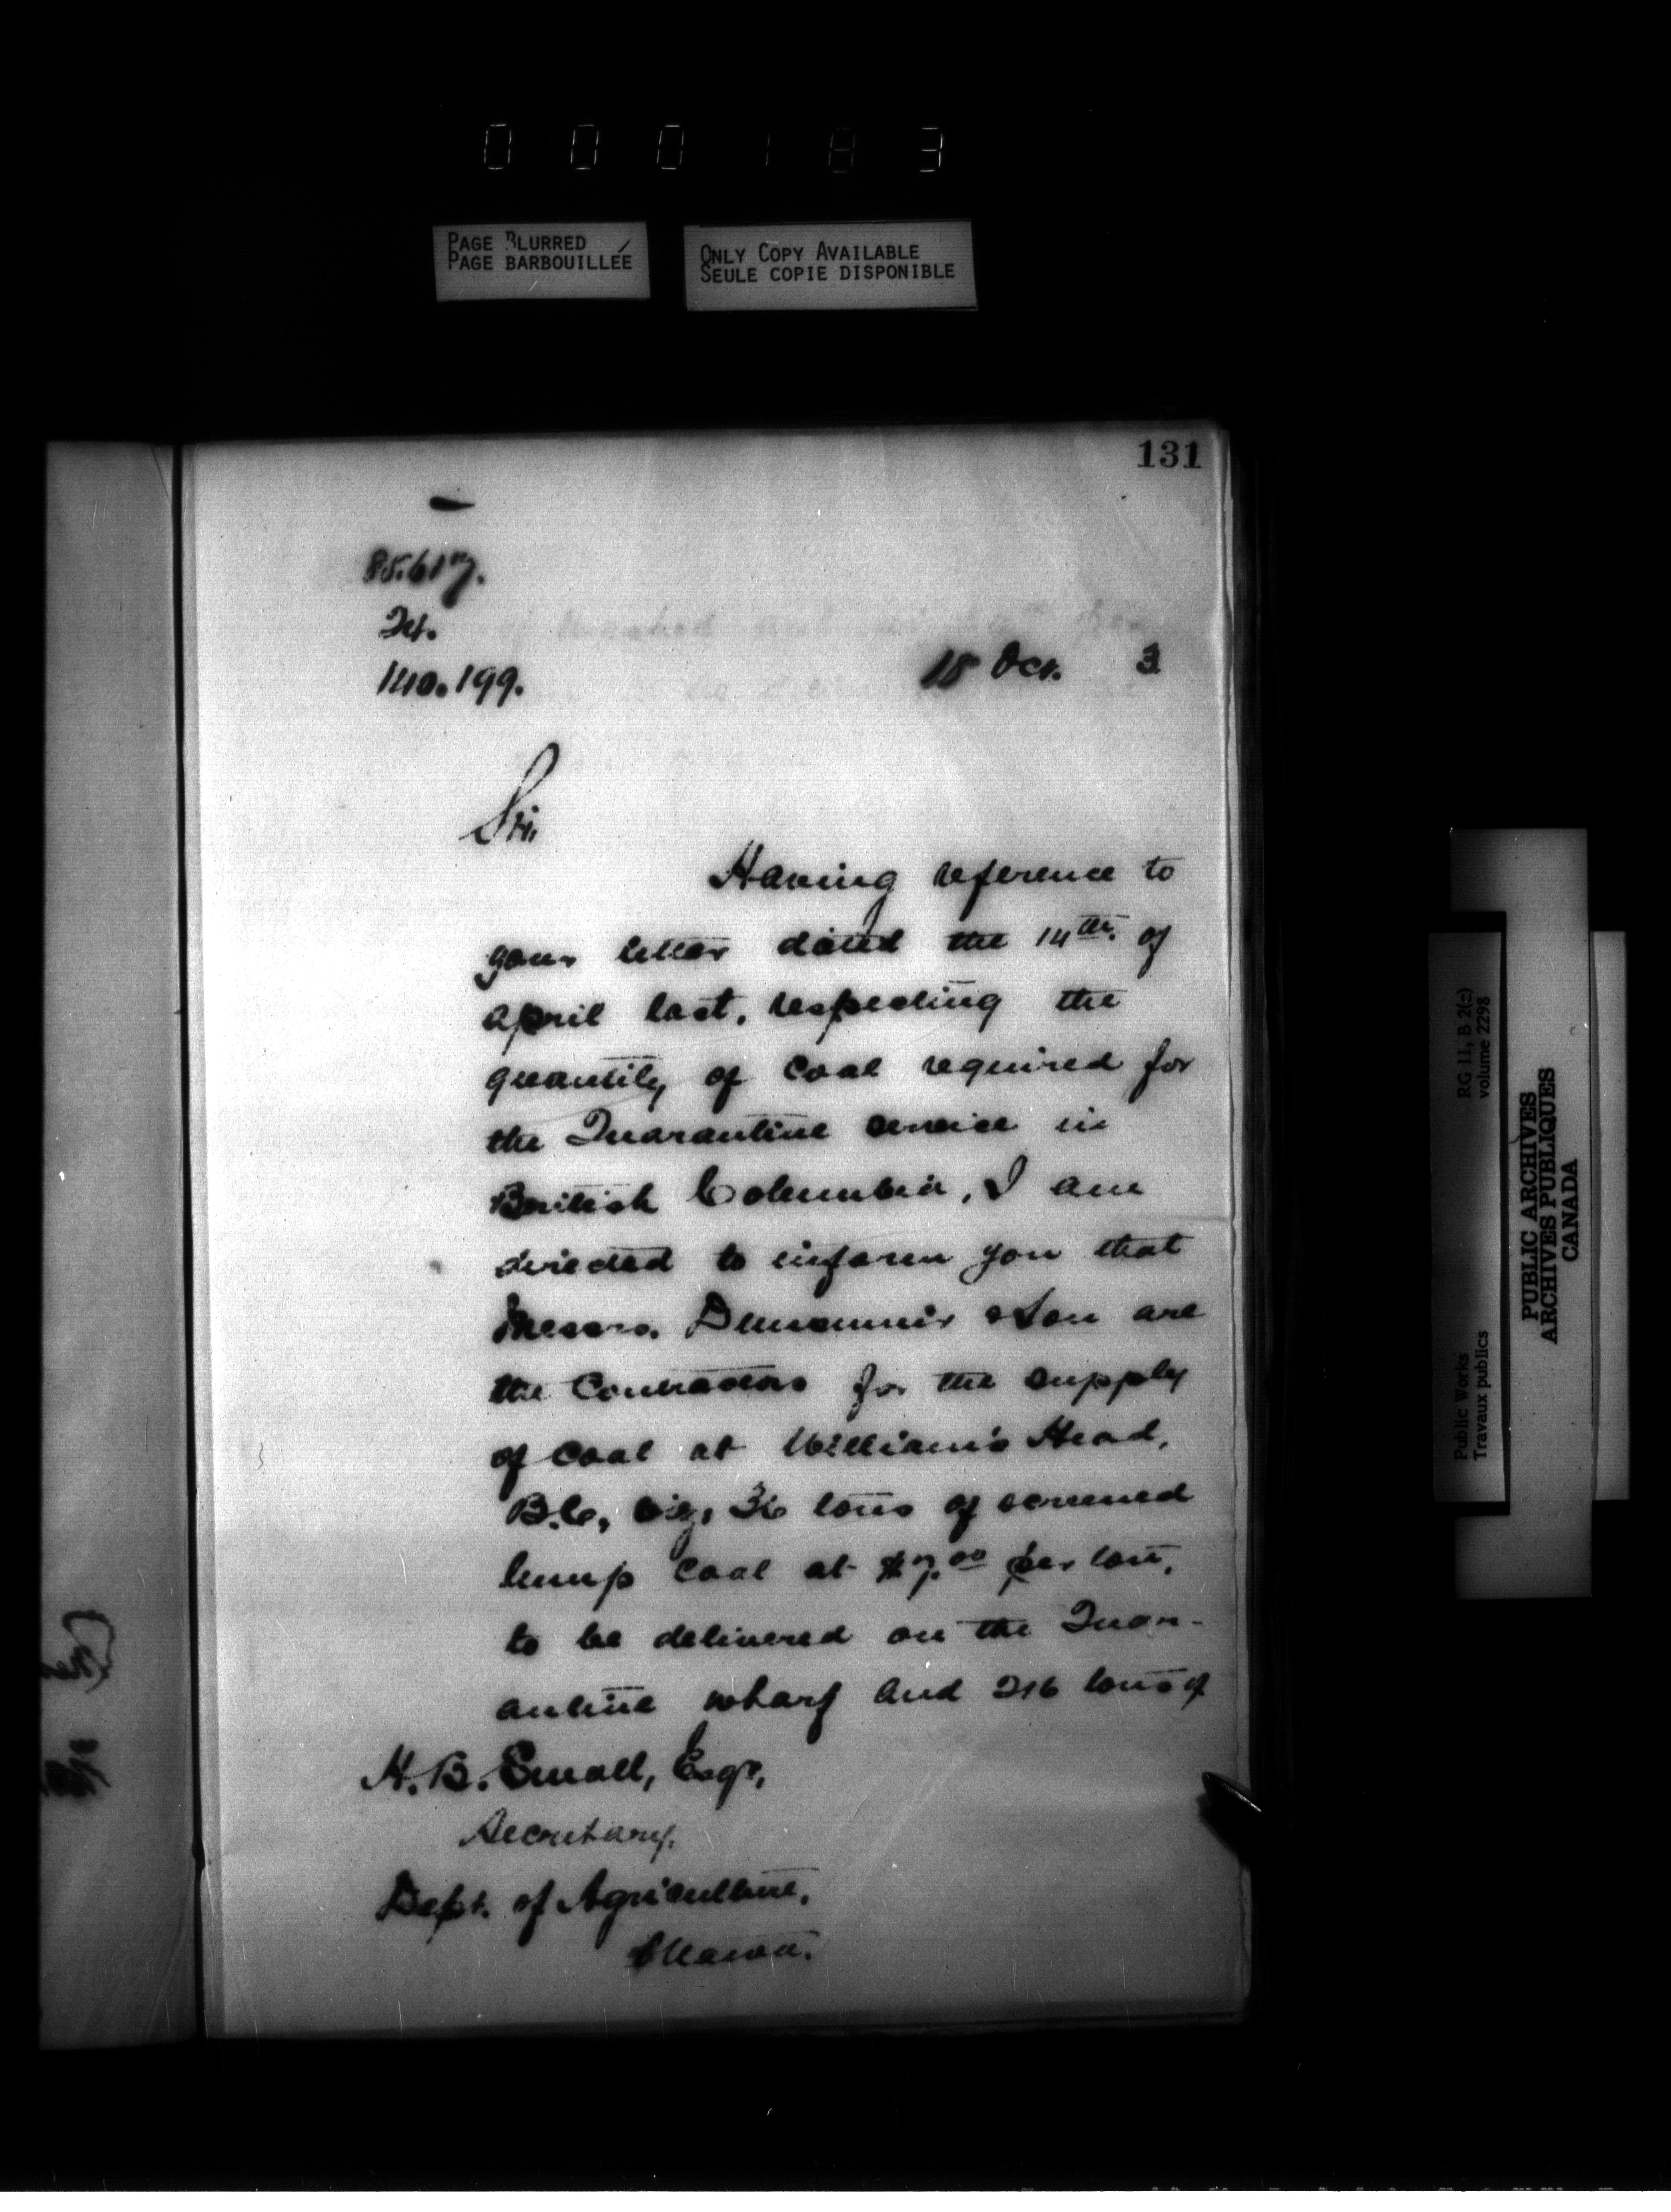 000183
PAGE BLURRED
PAGE BARBOUILLÉE
ONLY COPY AVAILABLE
SEULE COPIE DISPONIBLE
131
85.617.
140.199.
18 Oct. 3
Sir,
Having reference to
your letter dated the 14th. of
April last, respecting the
quantity of Coal required for
the Quarantine service in
British Columbia, I am
directed to inform you that
Messrs. Dunsmuir & Son are
the Contractors for the supply
of Coal at William's Head,
B.C., viz, 36 tons of screened
lump Coal at $7.00 per ton,
to be delivered on the Quar-
antine wharf and 216 tons of
H. B. Small, Esqr,
Secretary,
Dept. of Agriculture,
Ottawa.
Public Works
Travaux publics
RG 11, B 2(c)
volume 2298
PUBLIC ARCHIVES
ARCHIVES PUBLIQUES
CANADA